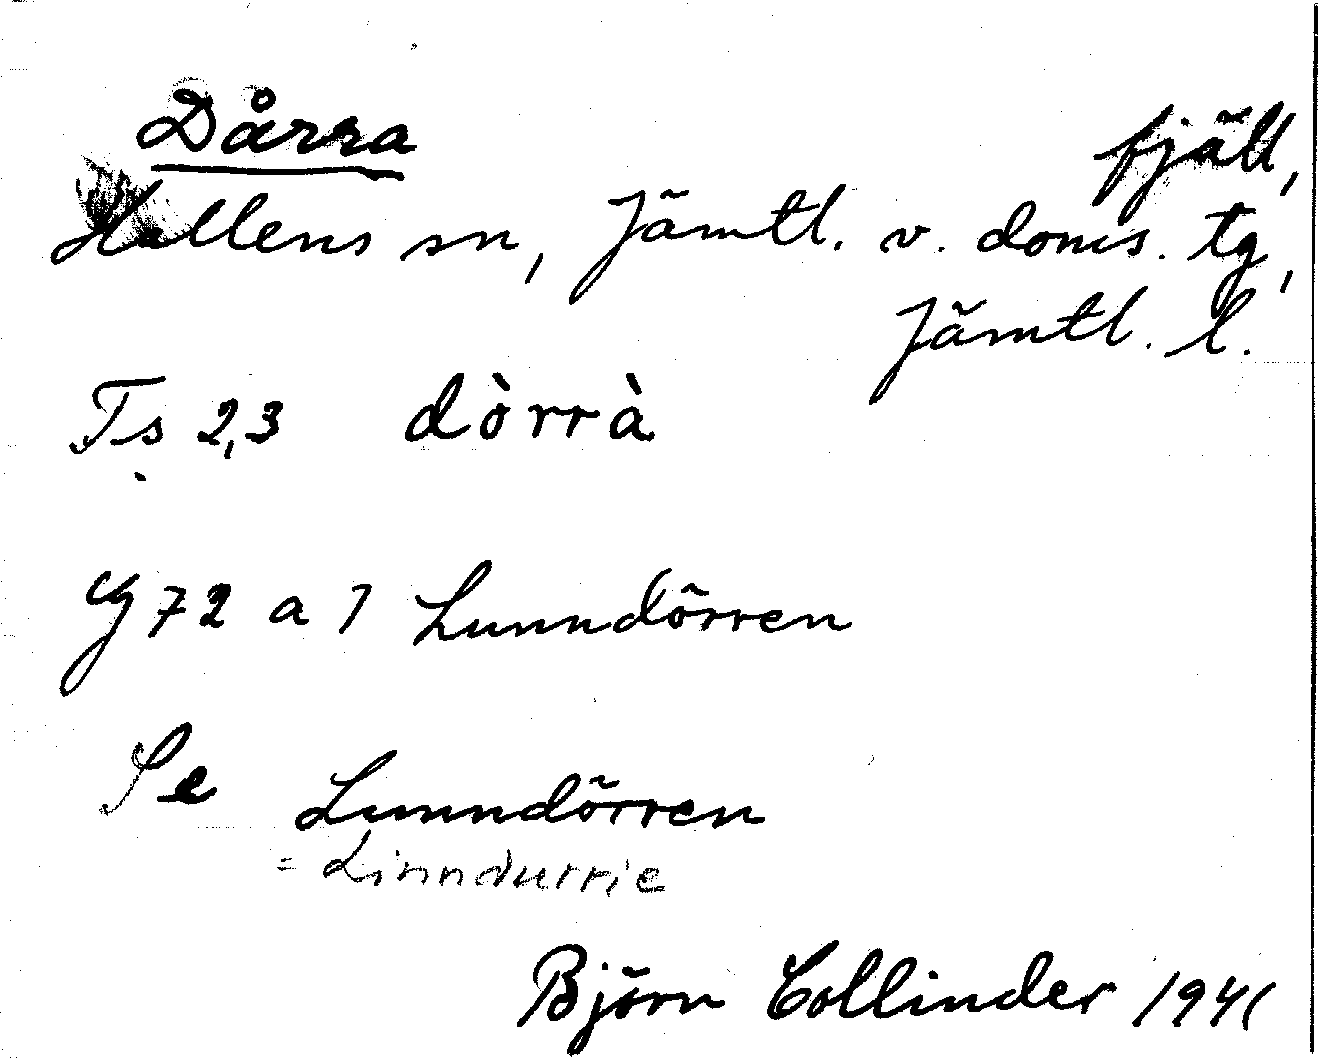 Dårra fjäll,
Hallens sn, Jämtl. v. doms. tg,
Jämtl. l.
Ts 2,3 dòrrà
G 72 a 7 Lunndörren
Se Lunndörren
= Linndurrie
Björn Collinder 1941